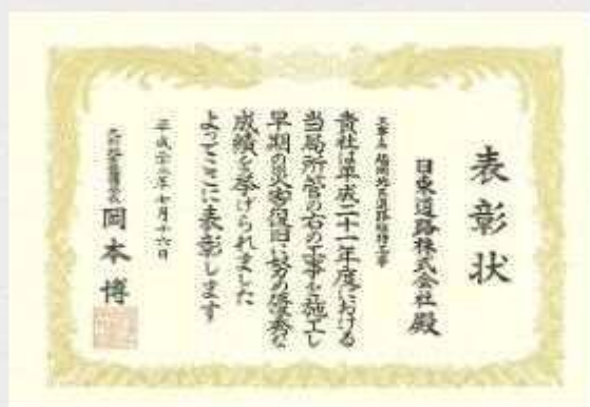 表彰状
日東道路株式会社殿
工事名 福岡地区道路維持工事
貴社は平成二十一年度における
当局所管の右の工事を施工し
早期の災害復旧に努め優秀な
成績を挙げられました
よってここに表彰します
平成二十二年七月十六日
九州地方整備局長 岡本博